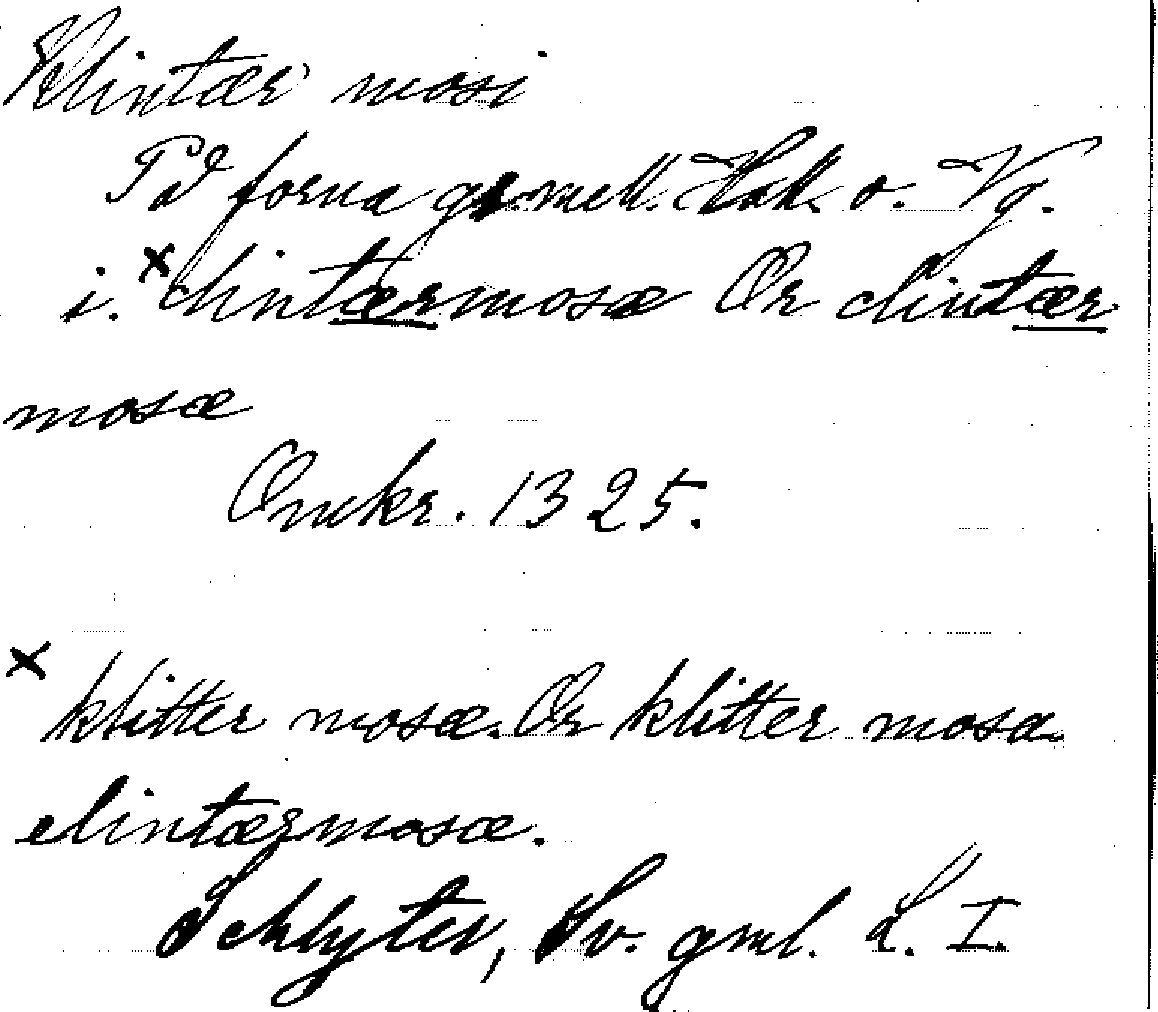 Klintær mosi
På forna gr. mell. Hall. o. Vg.
i. ˣclintærmosæ Or clintær
mosæ
Omkr. 1325.
x klitter mosæ. Or klitter mosæ
clintærmosæ.
Schlyter, Sv. gml. L. I.